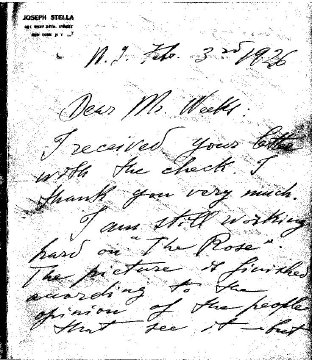 JOSEPH STELLA
NEW YORK N.Y.
N.Y. Feb. 3rd 1926
Dear Mr. Weeks.
I received your letter
with the check. I
thank you very much.
I am still working
hard on "The Rose".
The picture is finished
according to the
opinion of the people
that see it - but